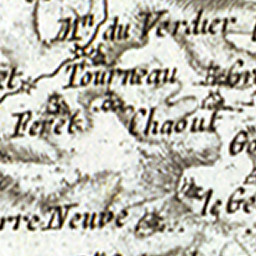 Mⁿ du Verdier
Tourneau
Peret
Chaout
le Ge
rre Neuve